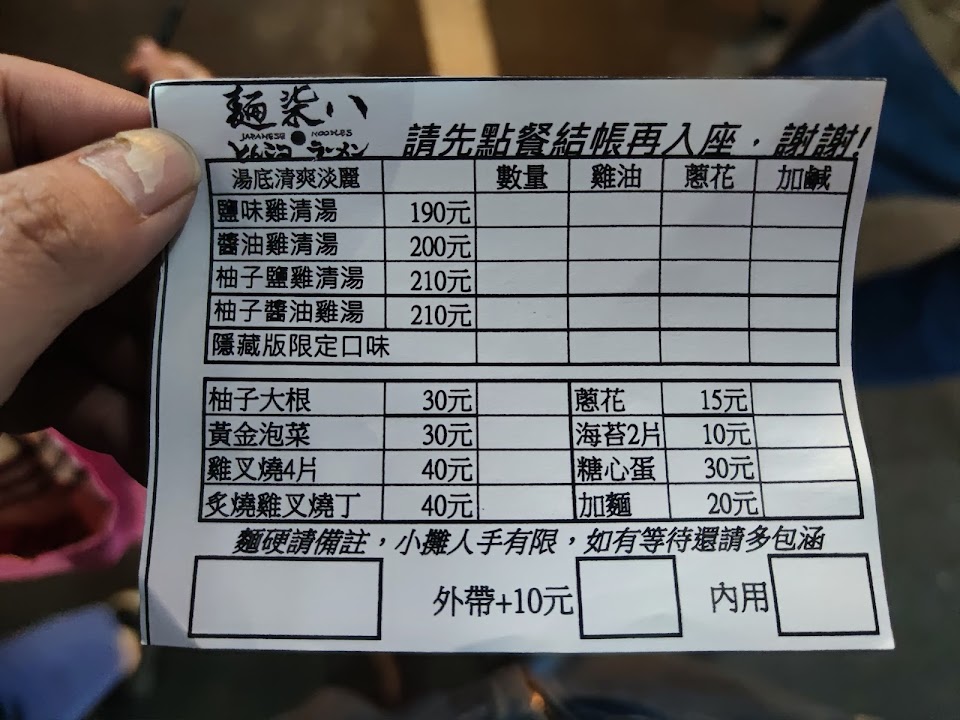 麵柒八
JAPANESE NOODLES
とんこつ ラーメン
請先點餐結帳再入座．謝謝!
湯底清爽淡麗 數量 雞油 蔥花 加鹹
鹽味雞清湯 190元
醬油雞清湯 200元
柚子鹽雞清湯 210元
柚子醬油雞湯 210元
隱藏版限定口味
柚子大根 30元 蔥花 15元
黃金泡菜 30元 海苔2片 10元
雞叉燒4片 40元 糖心蛋 30元
炙燒雞叉燒丁 40元 加麵 20元
麵硬請備註，小攤人手有限，如有等待還請多包涵
外帶+10元 內用